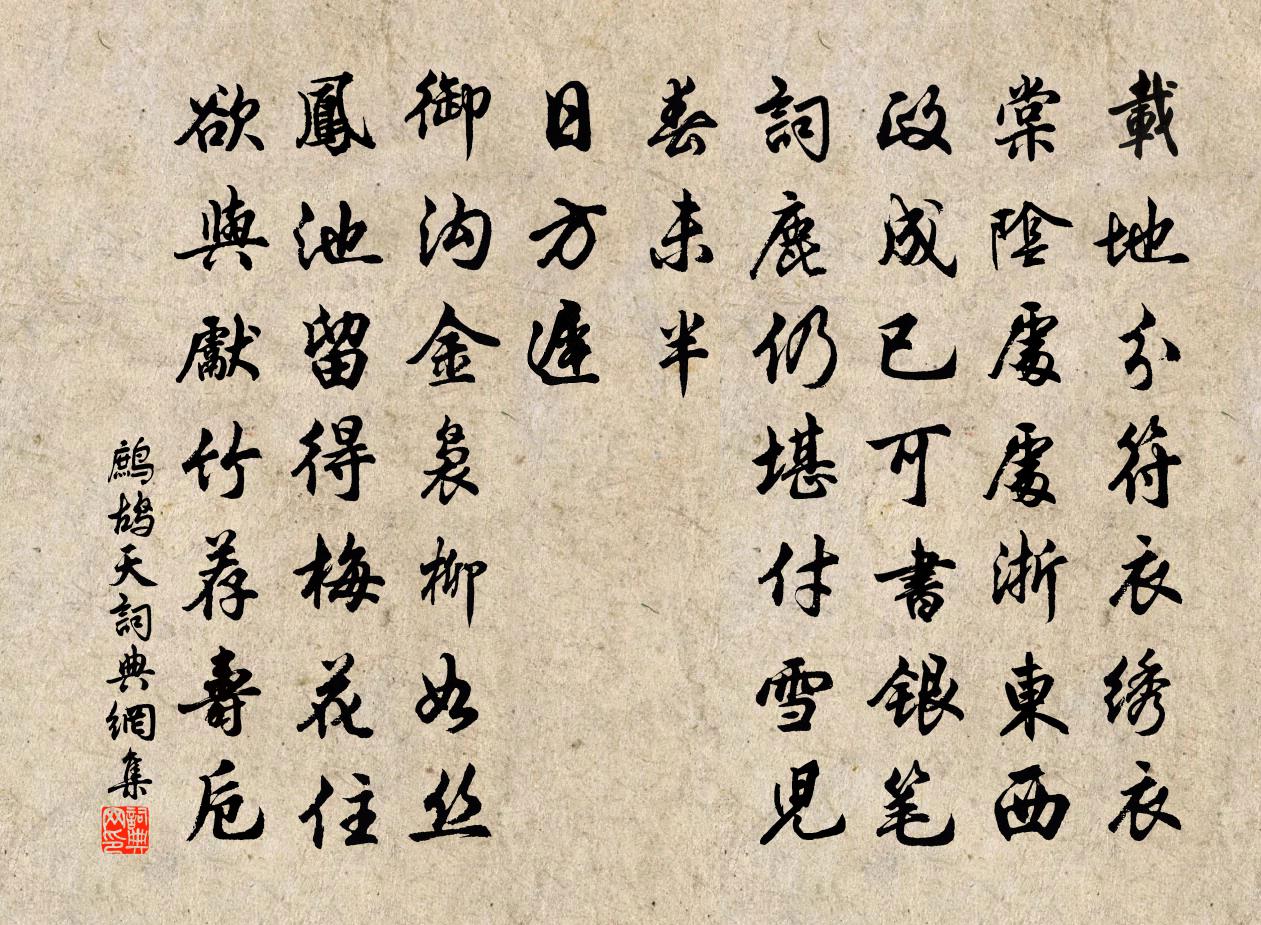 載地分符衣綉衣
棠陰處處浙東西
政成已可書銀笔
詞麗仍堪付雪兒
春未半
日方遲
御沟金裊柳如丝
鳳池留得梅花住
欲與獻竹荐壽卮
鷓鴣天詞典網集
詞典网印